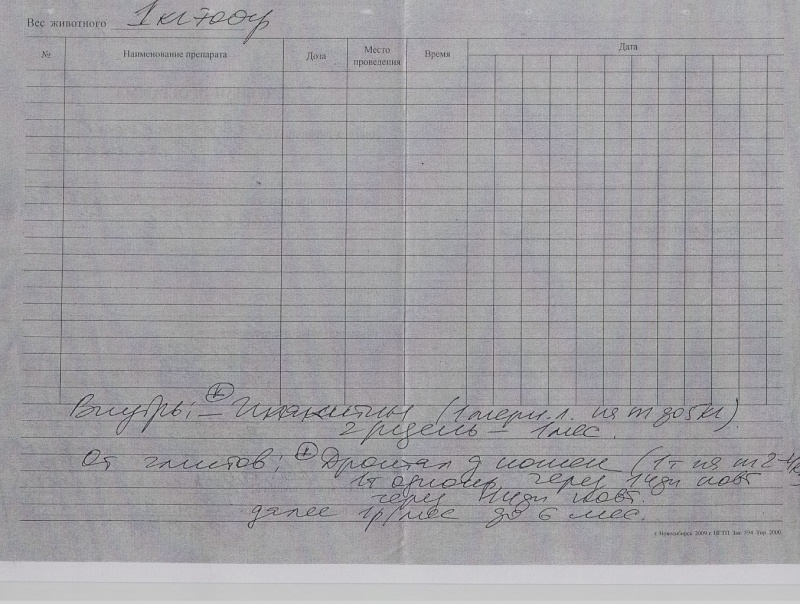 Вес животного 1 кг 700 гр
№ Наименование препарата Доза Место проведения Время Дата
Внутрь: – Ипакитин (1 мерн. л. на m до 5 кг)
2 р/день – 1 мес.
От глистов: Дронтал д кошек (1т на m 2-4 кг)
1т однокр через 1 нди повт
через нди повт.
далее 1р/мес до 6 мес.
г. Новосибирск 2009 г. НГТП Зак. 394 Тир. 2000